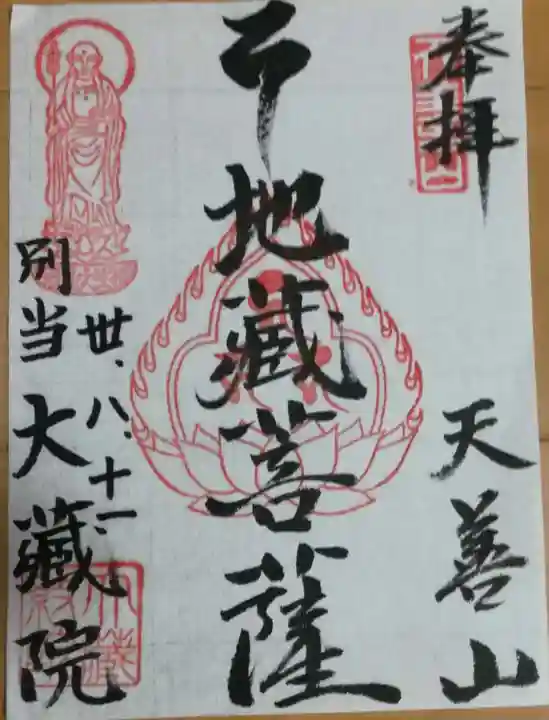 奉拝
天善山
地蔵菩薩
卅、八、十一、
別当 大蔵院